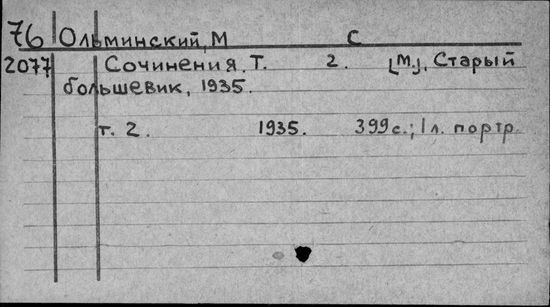 76 Ольминский, М С
2077 Сочинения. Т. 2. [М.], Старый
большевик, 1935.
т. 2. 1935. 399 с.; 1 л. портр.